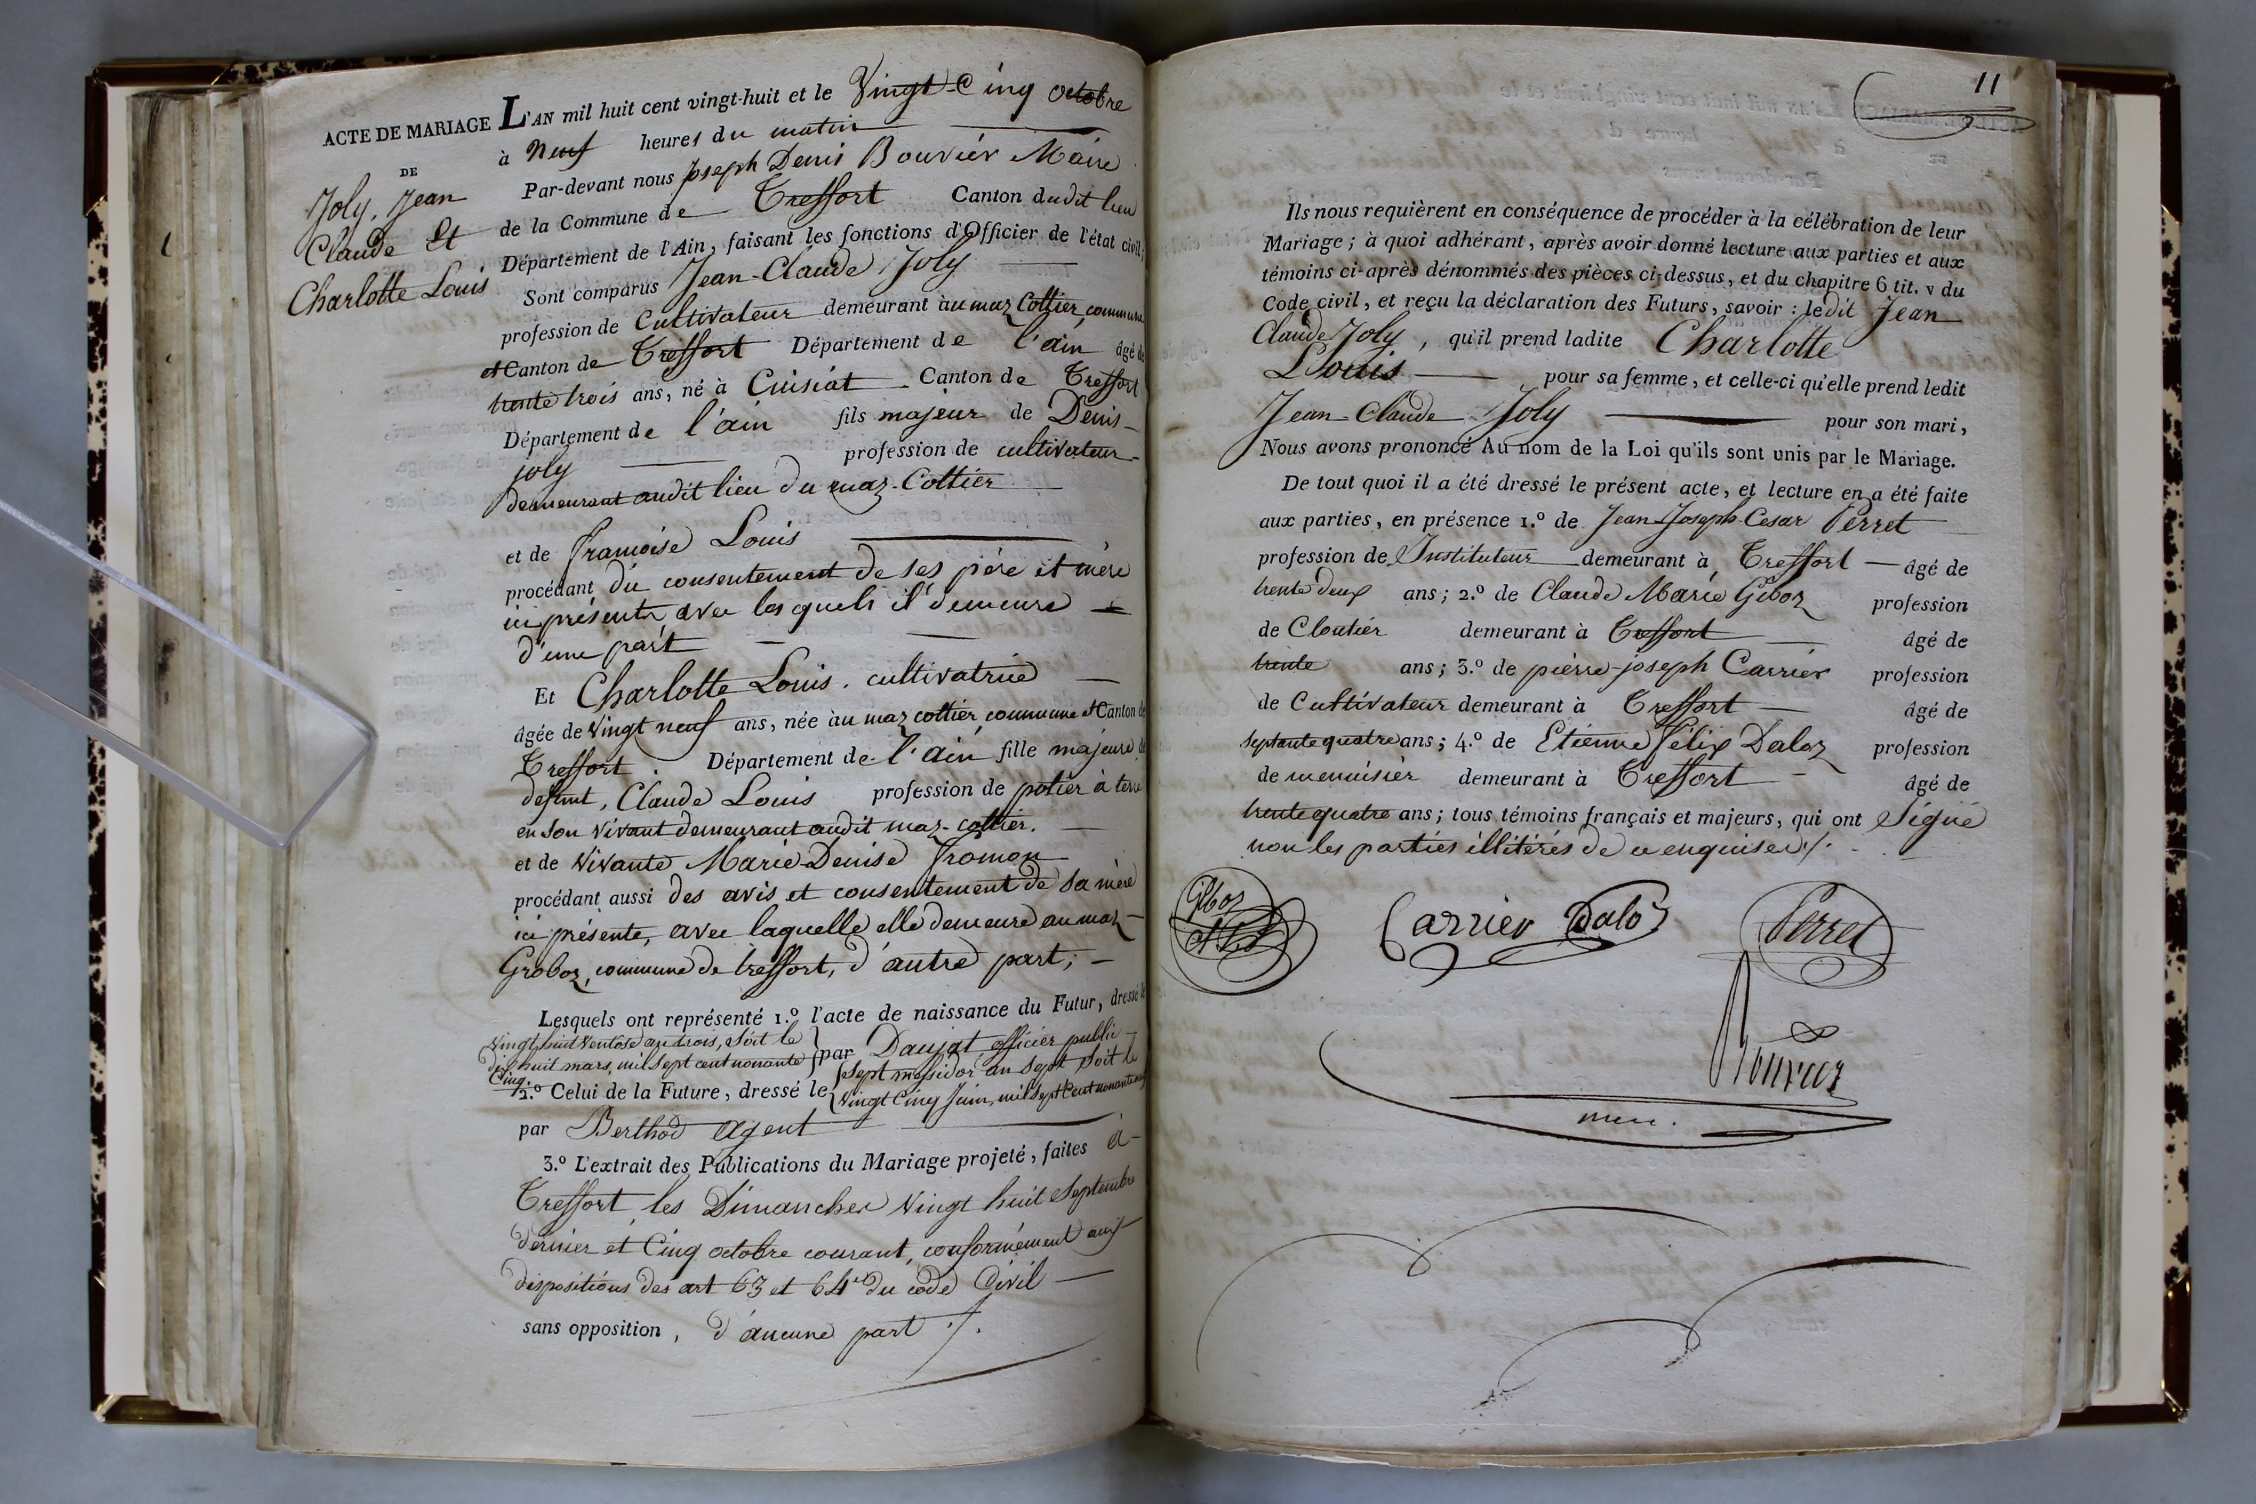 ACTE DE MARIAGE
DE
Joly, Jean
Claude Et
Charlotte Louis
L'AN mil huit cent vingt-huit et le Vingt-Cinq octobre
à Neuf heures du matin
Par-devant nous Joseph Denis Bouvier Maire
de la Commune de Treffort Canton dudit lieu
Département de l'Ain, faisant les fonctions d'Officier de l'état civil;
Sont comparus Jean-Claude Joly
profession de Cultivateur demeurant au maz Cottier, commune
et Canton de Treffort Département de l'ain âgé de
trente trois ans, né à Cuisiat Canton de Treffort
Département de l'ain fils majeur de Denis
joly profession de cultivateur
demeurant audit lieu du maz-Cottier
et de françoise Louis
procédant du consentement de ses père et mère
ici présents, avec lesquels il demeure
d'une part
Et Charlotte Louis, cultivatrice
âgée de vingt neuf ans, née au maz cottier, commune et Canton de
Treffort Département de l'ain fille majeure de
defunt, Claude Louis profession de potier à terre
en son vivant demeurant audit maz-cottier.
et de vivante Marie-Denise fromon
procédant aussi des avis et consentement de sa mère
ici présente, avec laquelle elle demeure au maz
Groboz, commune de treffort, d'autre part;
Lesquels ont représenté 1.º l'acte de naissance du Futur, dressé le
vingt huit ventose an trois, soit le
dix huit mars, mil sept cent nonante
Cinq. par Daujat officier public
2.º Celui de la Future, dressé le sept messidor an sept soit le
vingt Cinq Juin, mil sept Cent nonante neuf
par Berthod agent
3.º L'extrait des Publications du Mariage projeté, faites à
Treffort les Dimanches vingt huit Septembre
dernier et Cinq octobre courant, conformément aux
dispositions des art 63 et 64 du code Civil
sans opposition, d'aucune part ./.
11
Ils nous requièrent en conséquence de procéder à la célébration de leur
Mariage; à quoi adhérant, après avoir donné lecture aux parties et aux
témoins ci-après dénommés des pièces ci-dessus, et du chapitre 6 tit. v du
Code civil, et reçu la déclaration des Futurs, savoir : ledit Jean
Claude Joly, qu'il prend ladite Charlotte
Louis pour sa femme, et celle-ci qu'elle prend ledit
Jean-Claude Joly pour son mari,
Nous avons prononcé Au nom de la Loi qu'ils sont unis par le Mariage.
De tout quoi il a été dressé le présent acte, et lecture en a été faite
aux parties, en présence 1.º de Jean-Joseph-Cesar Perret
profession de Instituteur demeurant à Treffort âgé de
trente deux ans; 2.º de Claude Marie Giboz profession
de Cloutier demeurant à Treffort âgé de
trente ans; 3.º de pierre-joseph Carrier profession
de Cultivateur demeurant à Treffort âgé de
septante quatre ans; 4.º de Etienne félix Daloz profession
de menuisier demeurant à Treffort âgé de
trente quatre ans; tous témoins français et majeurs, qui ont Signé
non les parties illitérés de ce enquises ./.
Giboz
Carrier Daloz
Perret
Bouvier